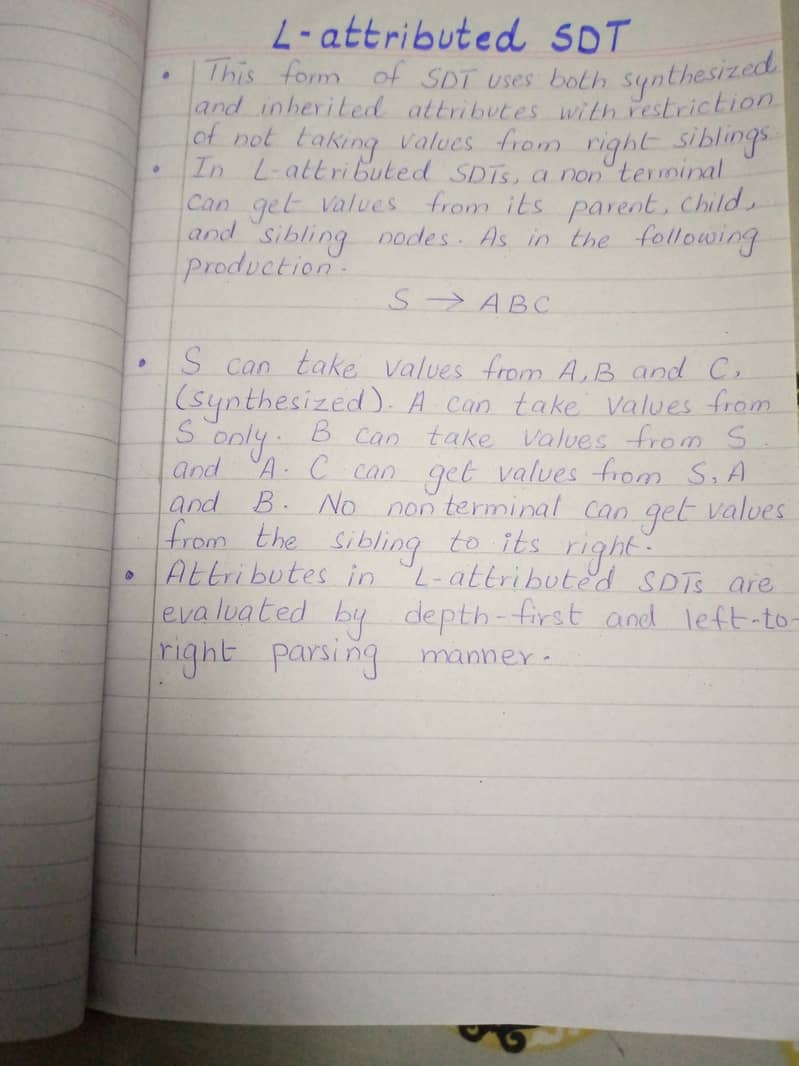 L-attributed SDT
• This form of SDT uses both synthesized
and inherited attributes with restriction
of not taking values from right siblings.
• In L-attributed SDTs, a non terminal
can get values from its parent, child,
and sibling nodes. As in the following
production.
S → ABC
• S can take values from A, B and C,
(synthesized). A can take values from
S only. B can take values from S
and A. C can get values from S, A
and B. No non terminal can get values
from the sibling to its right.
• Attributes in L-attributed SDTs are
evaluated by depth-first and left-to-
right parsing manner.